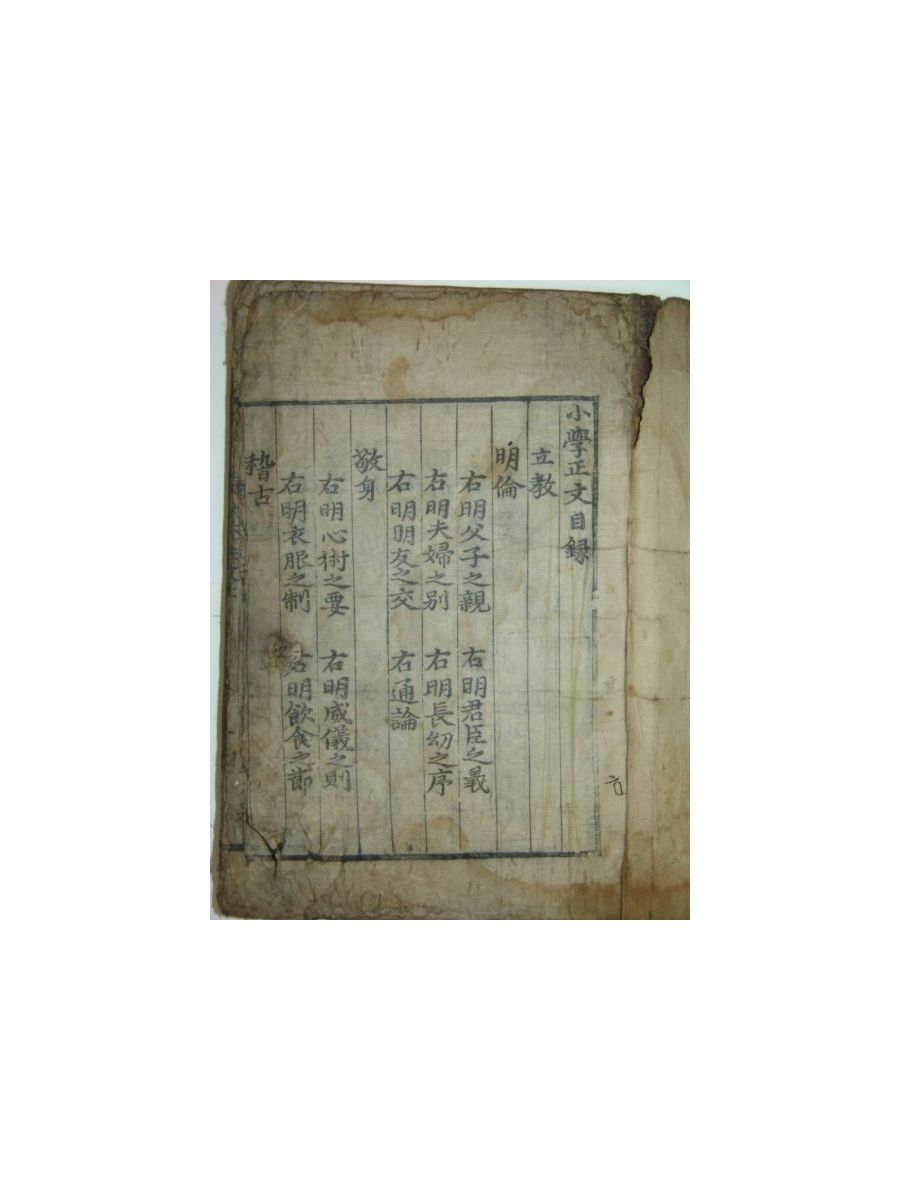 小學正文目録
立教
明倫
右明父子之親 右明君臣之義
右明夫婦之别 右明長幼之序
右明明友之交 右通論
敬身
右明心術之要 右明威儀之則
右明衣服之制 右明飲食之節
稽古